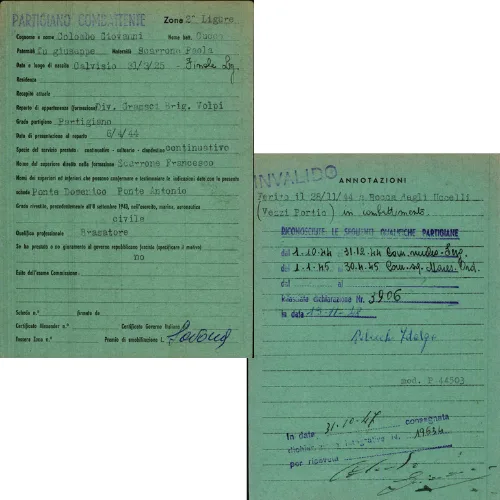 PARTIGIANO COMBATTENTE Zona 2° Ligure
Cognome e nome Colombo Giovanni Nome batt.
Paternità fu giuseppe Maternità Scarrone Paola
Data e luogo di nascita Calvisio 31/3/25 - Finale Lg.
Residenza
Recapito attuale
Reparto di appartenenza (formazione) Div. Gramsci Brig. Volpi
Grado partigiano Partigiano
Data di presentazione al reparto 6/4/44
Specie del servizio prestato: continuativo - saltuario - clandestino continuativo
Nome del superiore diretto nella formazione Scarrone Francesco
Nomi dei superiori ed inferiori che possono confermare e testimoniare le indicazioni date con la presente
scheda Ponte Domenico Ponte Antonio
Grado rivestito, precedentemente all'8 settembre 1943, nell'esercito, marina, aeronautica
civile
Qualifica professionale Bracciante
Se ha prestato o no giuramento al governo repubblicano fascista (specificare il motivo)
no
Esito dell'esame Commissione:
Scheda n. firmata da
Certificato Alexander n. Certificato Governo Italiano
Tessera Zona n. Premio di smobilitazione L. Savona
INVALIDO
ANNOTAZIONI
Ferito il 28/11/44 a Bocca degli Uccelli
(Vezzi Portio) in combattimento.
RICONOSCIUTE LE SEGUENTI QUALIFICHE PARTIGIANE
dal 1.10.44 al 31.12.44 Com. nucleo - Serg.
dal 1.1.45 al 30.4.45 Com. sq. Mares. Ord.
dal al
Rilasciata dichiarazione Nr. 3906
in data
mod. P 44503
In data, 31-10-47 consegnata
dichiaraz. integrativa N. 19534
per ricevuta